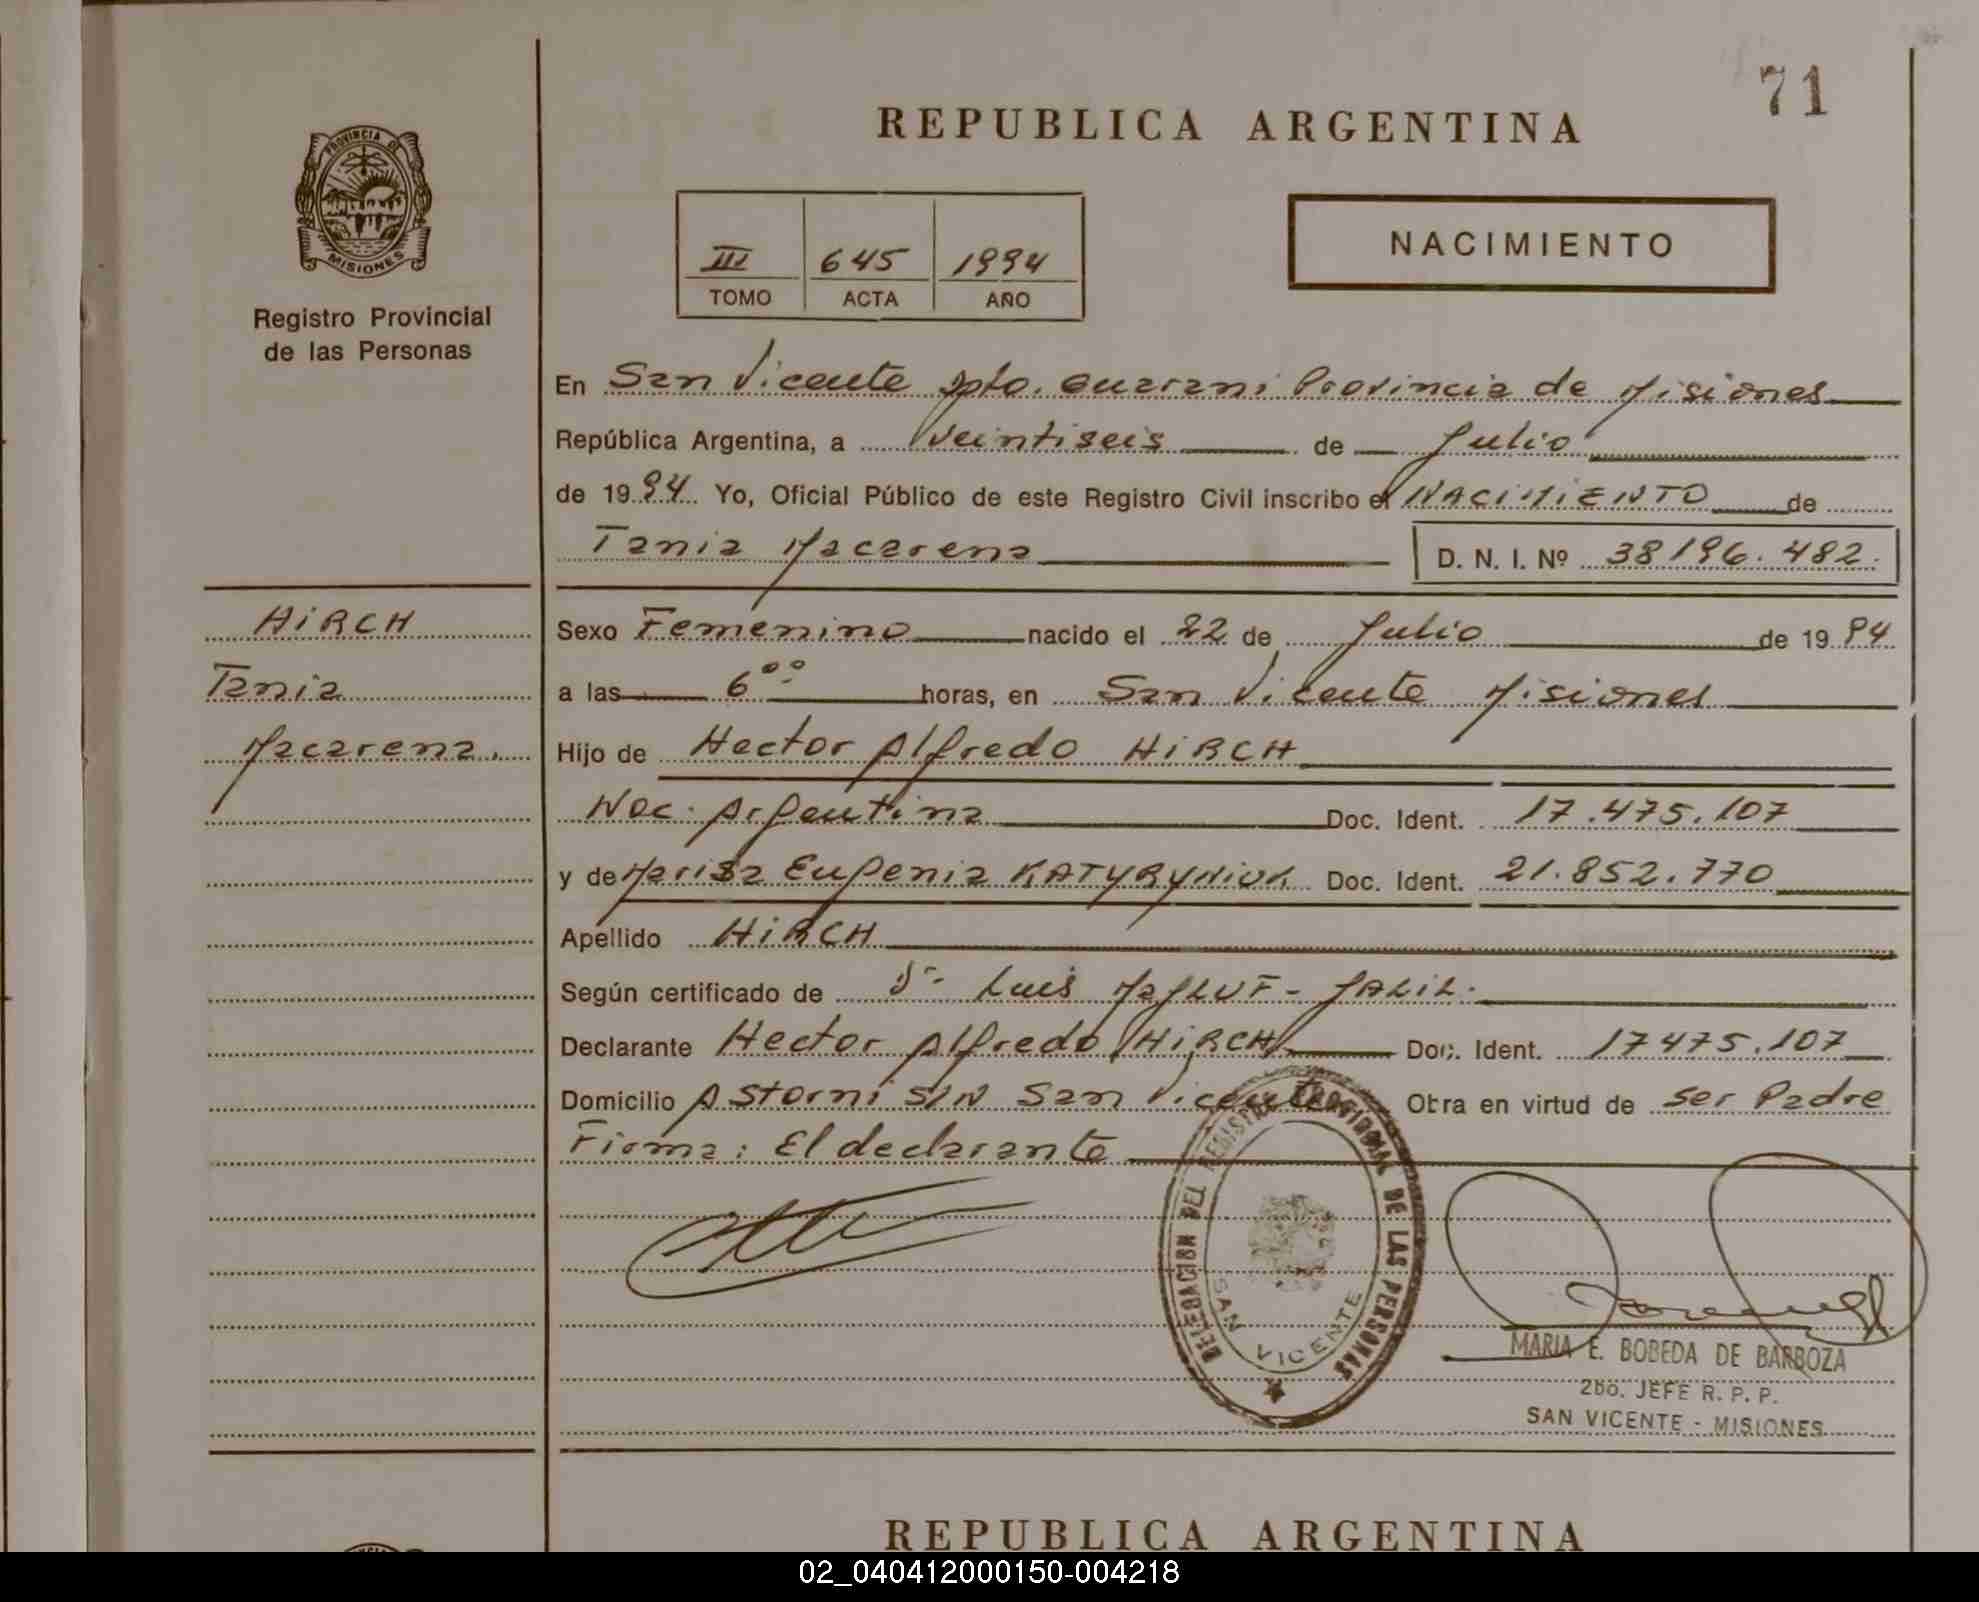 71
REPUBLICA ARGENTINA
PROVINCIA DE
MISIONES
Registro Provincial
de las Personas
III 645 1994
TOMO ACTA AÑO
NACIMIENTO
En San Vicente Dpto. Guarani Provincia de Misiones
República Argentina, a Veintiseis de Julio
de 1994 Yo, Oficial Público de este Registro Civil inscribo el NACIMIENTO de
Tania Macarena D. N. I. Nº 38196.482.
HiRCH
Tania
Macarena.
Sexo Femenino nacido el 22 de Julio de 1994
a las 6 oo horas, en San Vicente Misiones
Hijo de Hector Alfredo HiRCH
Nac. Argentina Doc. Ident. 17.475.107
y de Marisa Eugenia KATYRYNIUK Doc. Ident. 21.852.770
Apellido HiRCH
Según certificado de Dr. Luis JALIL.
Declarante Hector Alfredo HiRCH Doc. Ident. 17475.107
Domicilio A Storni S/N San Vicente Obra en virtud de ser Padre
Firma: El declarante
DELEGACION DEL REGISTRO PROVINCIAL DE LAS PERSONAS
SAN VICENTE
MARIA E. BOBEDA DE BARBOZA
2do. JEFE R. P. P.
SAN VICENTE - MISIONES
REPUBLICA ARGENTINA
02_040412000150-004218